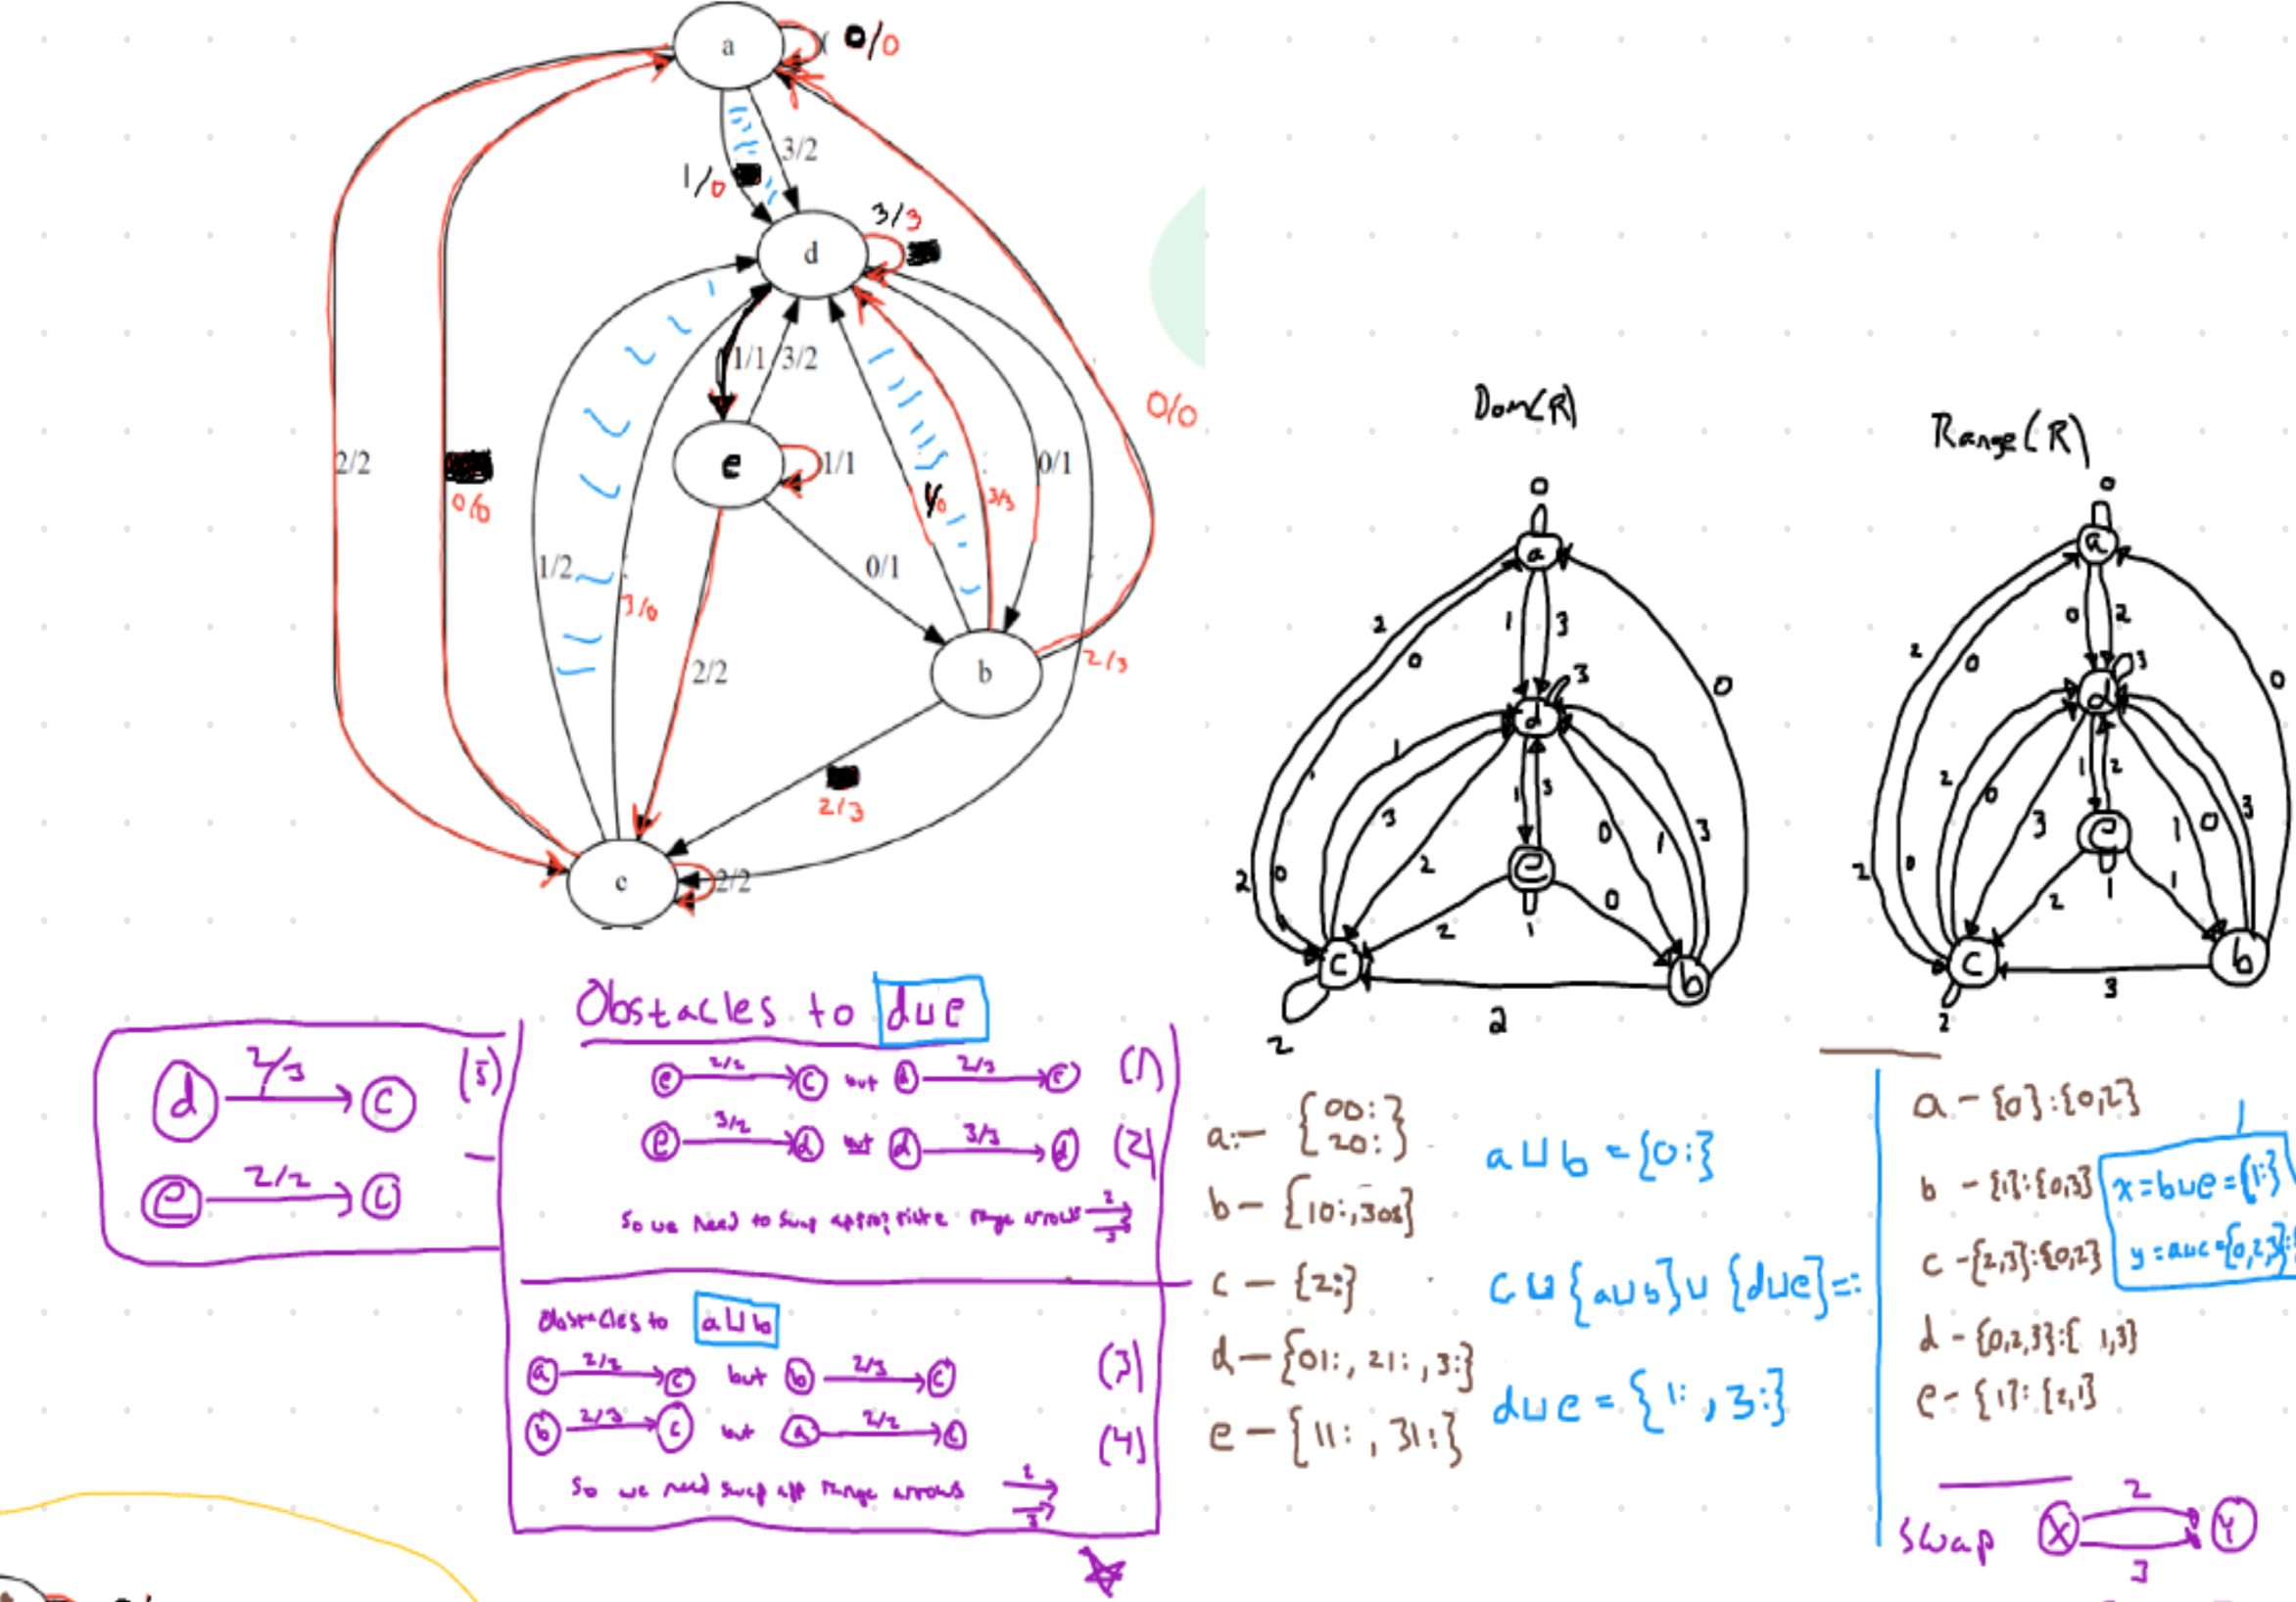 a
0/0
3/2
1/0
3/3
d
1/1
3/2
0/0
2/2
e
1/1
3/3
0/1
0/0
1/0
1/2
3/0
0/1
2/2
b
2/3
2/3
c
2/2
Dom(R)
Range(R)
0
a
2
0
1
3
3
0
d
1
3
2
1
3
0
1
3
2
0
e
2
0
1
c
b
2
2
0
a
2
0
0
2
3
0
d
2
0
3
1
2
1
0
3
2
0
e
2
1
1
c
b
3
2
Obstacles to d⊔e
d 2/3 c (5)
e 2/2 c
e 2/2 c but d 2/3 c (1)
e 3/2 d but d 3/3 d (2)
So we need to swap appropriate range arrows 2 3
Obstacles to a⊔b
a 2/2 c but b 2/3 c (3)
b 2/3 c but a 2/2 c (4)
So we need swap app range arrows 2 3
a:- {00: 20:}
b - {10:,30:}
c - {2:}
d - {01:, 21:, 3:}
e - {11:, 31:}
a⊔b = {0:}
c⊔{a⊔b}∪{d⊔e}=
d⊔e = {1:, 3:}
a - {0}:{0,2}
b - {1}:{0,3}
c - {2,3}:{0,2}
d - {0,2,3}:{ 1,3}
e - {1}:{2,1}
x=b⊔e={1:}
y=a⊔c={0,2,3}:
Swap X 2 Y
3